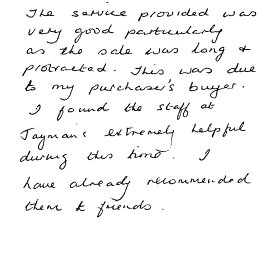 The service provided was
very good particularly
as the sale was long &
protracted. This was due
to my purchaser's buyer.
I found the staff at
Jayman's extremely helpful
during this time. I
have already recommended
them to friends.